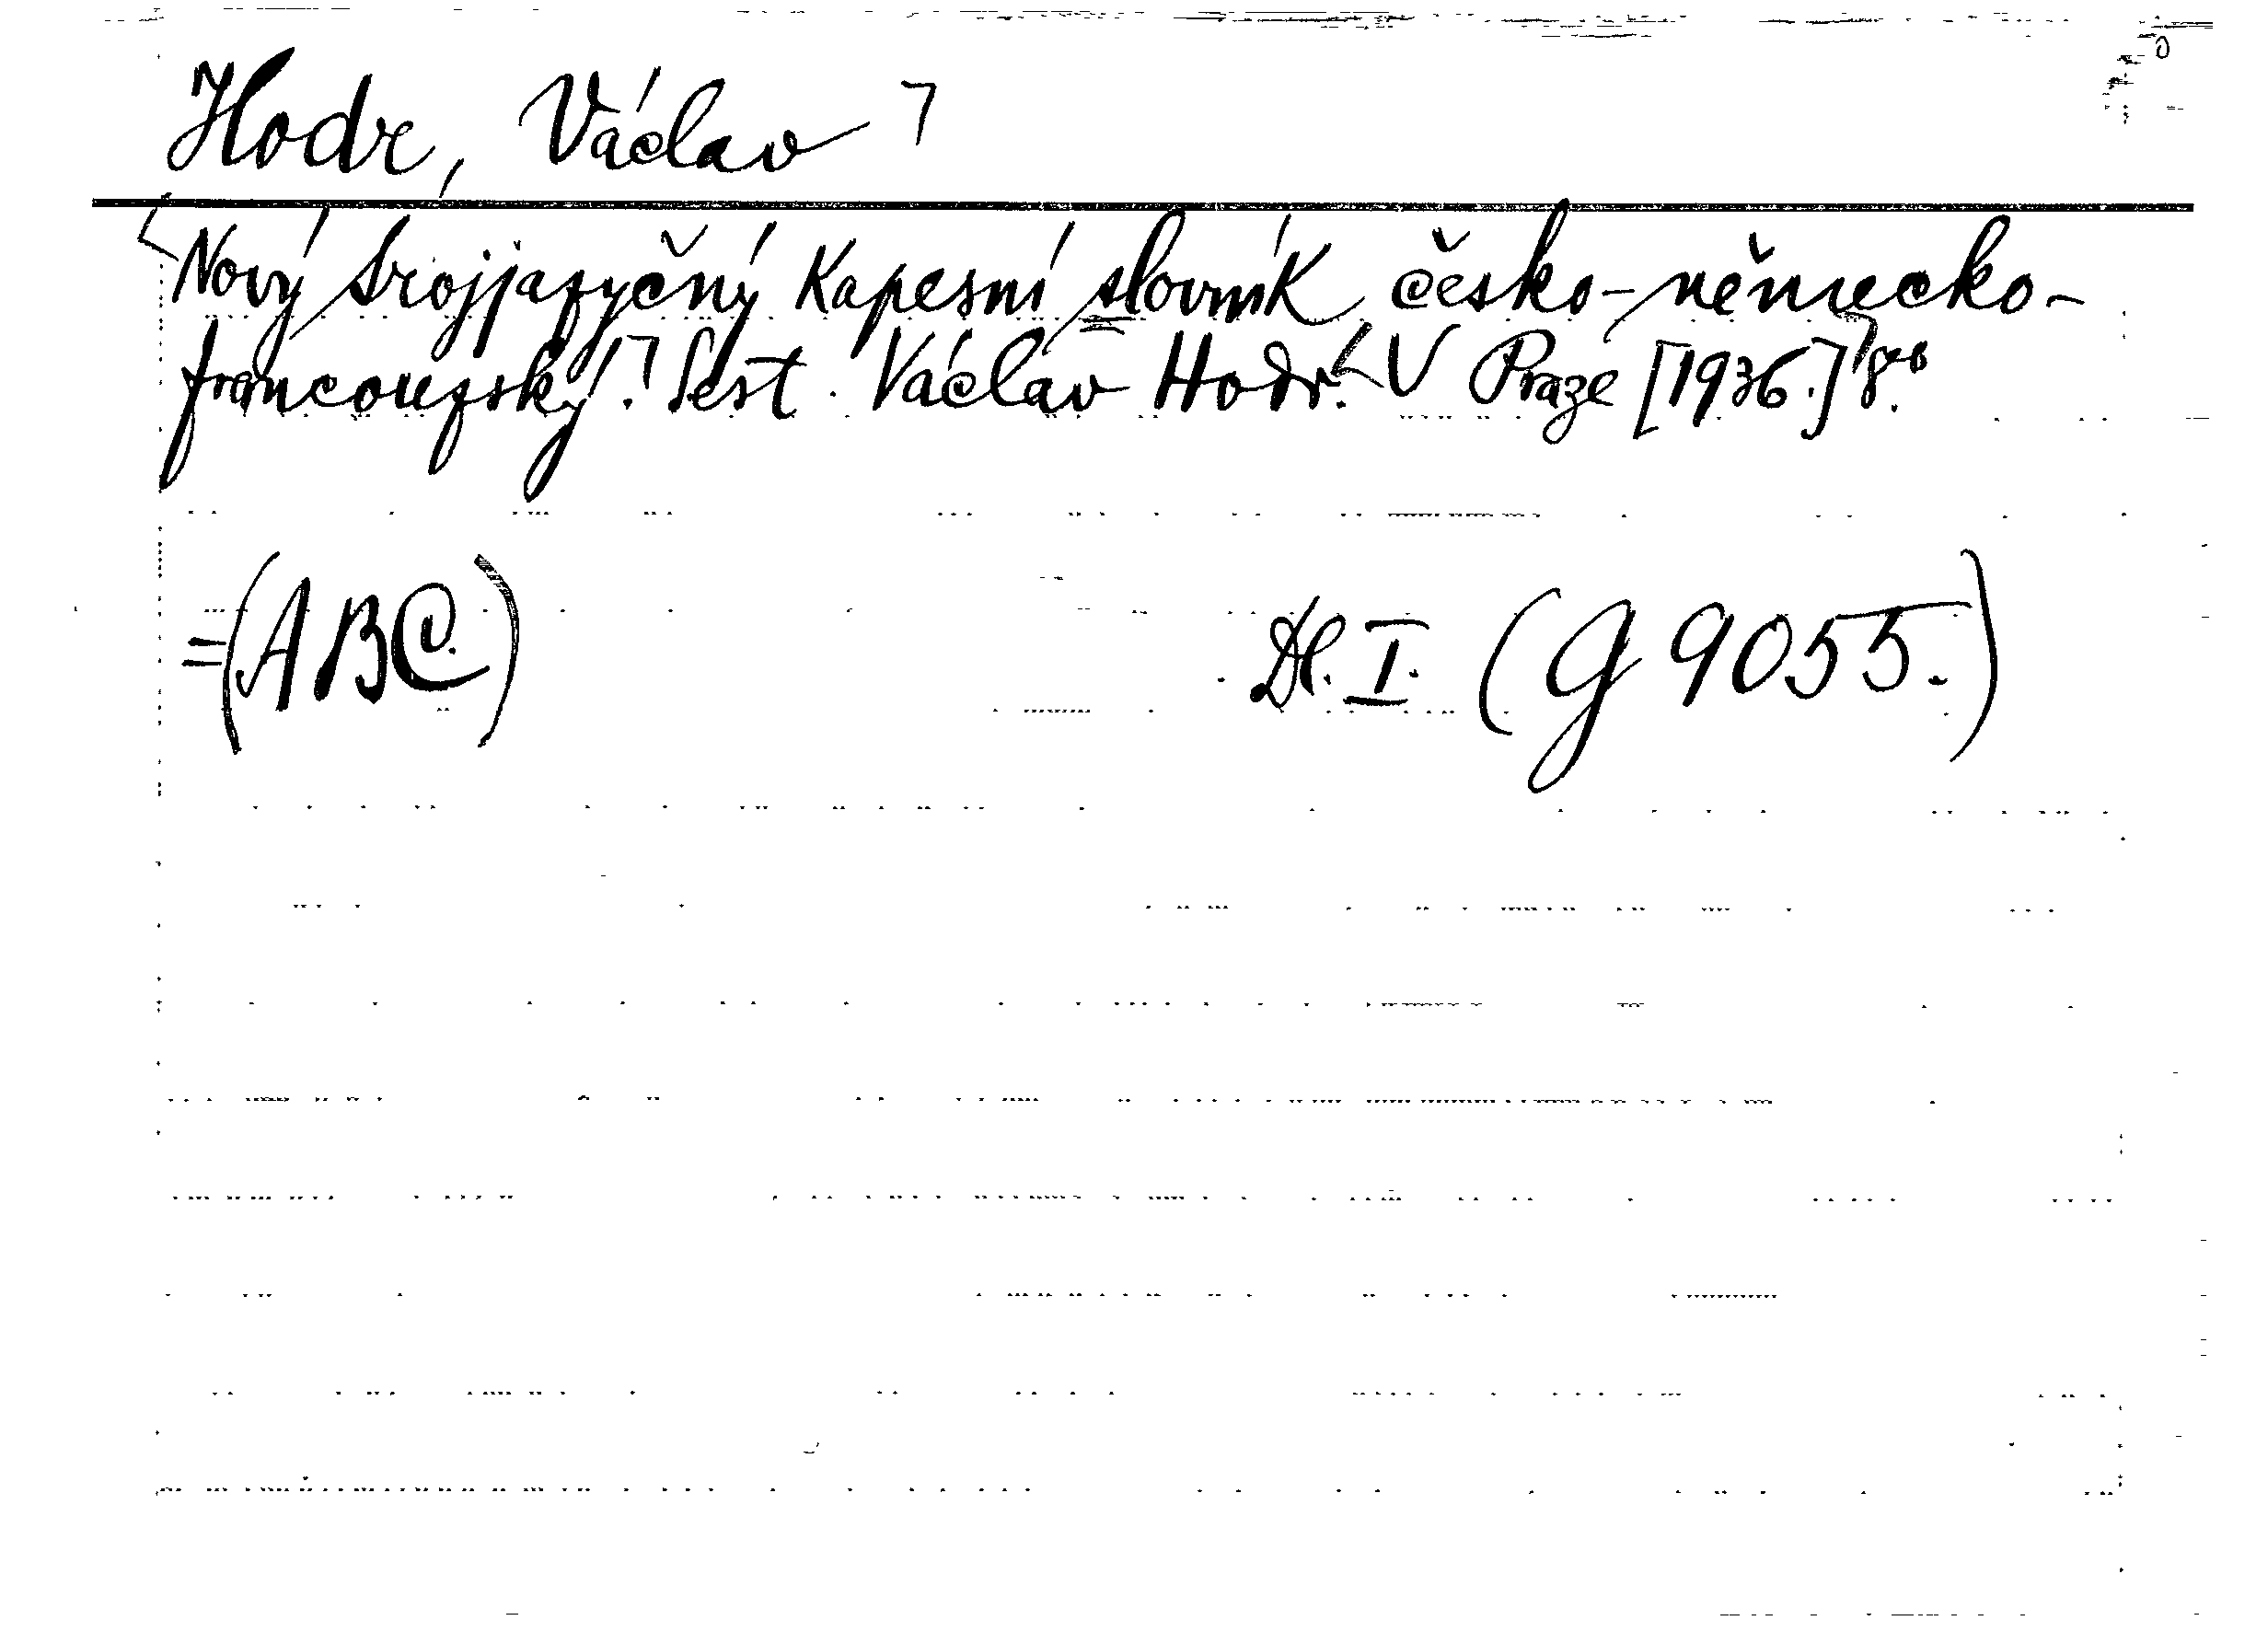 Hodr, Václav
Nový trojjazyčný kapesní slovník česko-německo-
francouzský. Sest. Václav Hodr. V Praze [1936.] 8°.
=(ABC) Dl. I. (G 9055.)